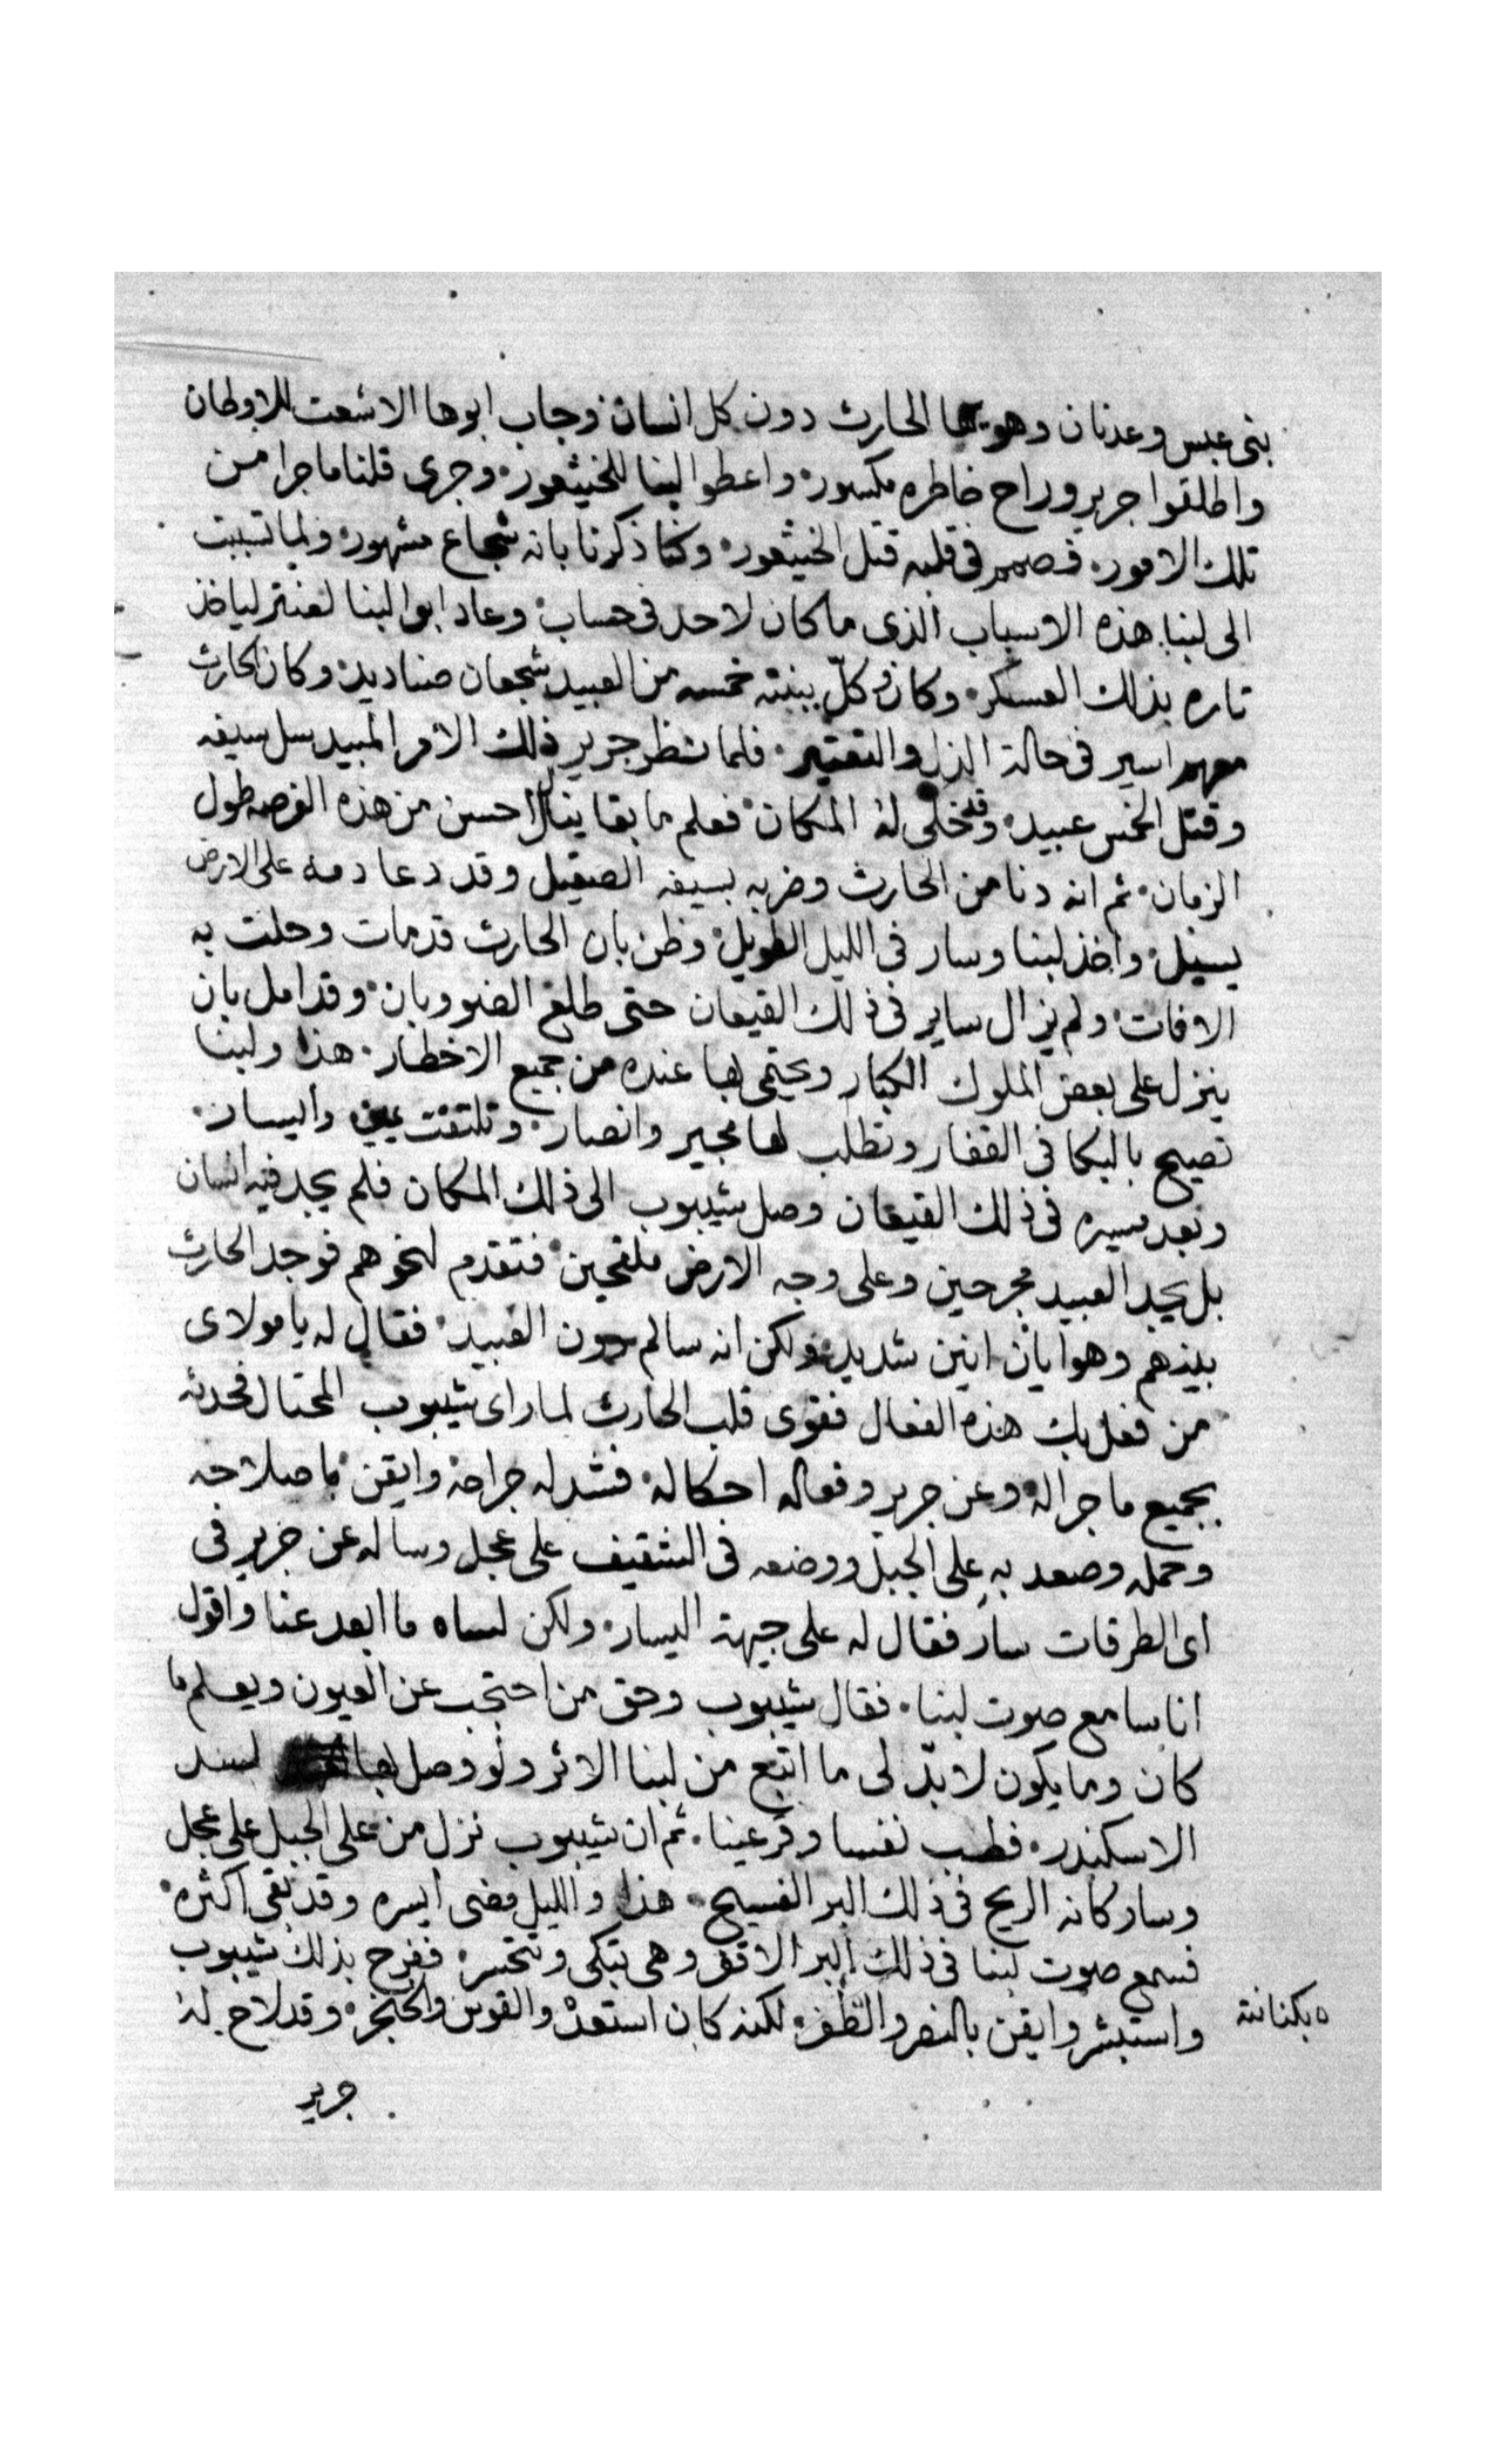 بنى عبس وعدنان وهويها الحارث دون كل انسان وجاب ابوها الاشعت للاوطان
واطلقوا جرير وراح خاطره مكسور واعطوا لبنا للخيثعور وجرى قلنا ما جرا من
تلك الامور فصمم فى قلبه قتل الخيثعور وكنا ذكرنا بانه شجاع مشهور ولما تسببت
الى لبنا هذه الاسباب الذى ما كان لاحد فى حساب وعاد ابو لبنا لعنتر لياخذ
تاره بذلك العسكر وكان وكل ببنته خمسه من العبيد شجعان صناديد وكان الحارث
معهم اسير فى حالة الذل والتعتير فلما نظر جرير ذلك الامر المبيد سل سيفه
وقتل الخمس عبيد وقد خلى له المكان فعلم ما بقا ينال احسن من هذه الفرصه طول
الزمان ثم انه دنا من الحارث وضربه بسيفه الصقيل وقد دعا دمه على الارض
يسيل واخذ لبنا وسار فى الليل الطويل وظن بان الحارث قد مات وحلت به
الافات ولم يزال ساير فى ذلك القيعان حتى طلع الضو وبان وقد امل بان
ينزل على بعض الملوك الكبار ويحتمى بها عنده من جميع الاخطار هذا ولبنا
تصيح بالبكا فى القفار وتطلب لها مجير وانصار وتلتفت يمين واليسار
وبعد مسيره فى ذلك القيعان وصل شيبوب الى ذلك المكان فلم يجد فيه انسان
بل يجد العبيد مجرحين وعلى وجه الارض ملقحين فتقدم لنحوهم فوجد الحارث
بينهم وهو ايان انين شديد ولكن انه سالم دون العبيد فقال له يا مولاى
من فعل بك هذه الفعال فقوى قلب الحارث لما راى شيبوب المحتال فحدثه
بجميع ما جرا له وعن جرير وفعاله احكا له فشد له جراحه وايقن باصلاحه
وحمله وصعد به على الجبل ووضعه فى الشقيف على عجل وساله عن جرير فى
اى الطرقات سار فقال له على جيهة اليسار ولكن لساه ما ابعد عنا واقول
انا سامع صوت لبنا فقال شيبوب وحق من احتجب عن العيون ويعلم ما
كان وما يكون لا بدّ لى ما اتبع من لبنا الاثر ولو وصل بها لسد
الاسكندر فطب نفسا وقر عينا ثم ان شيبوب نزل من على الجبل على عجل
وسار كانه الريح فى ذلك البر الفسيح هذا والليل مضى ايسره وقد بقى اكثره
فسمع صوت لبنا فى ذلك البر الاقفر وهى تبكى وتتحسر ففرح بذلك شيبوب
واستبشر وايقن بالنصر والظفر لكنه كان استعد والقوس والخنجر وقد لاح له
بكنانته
جرير